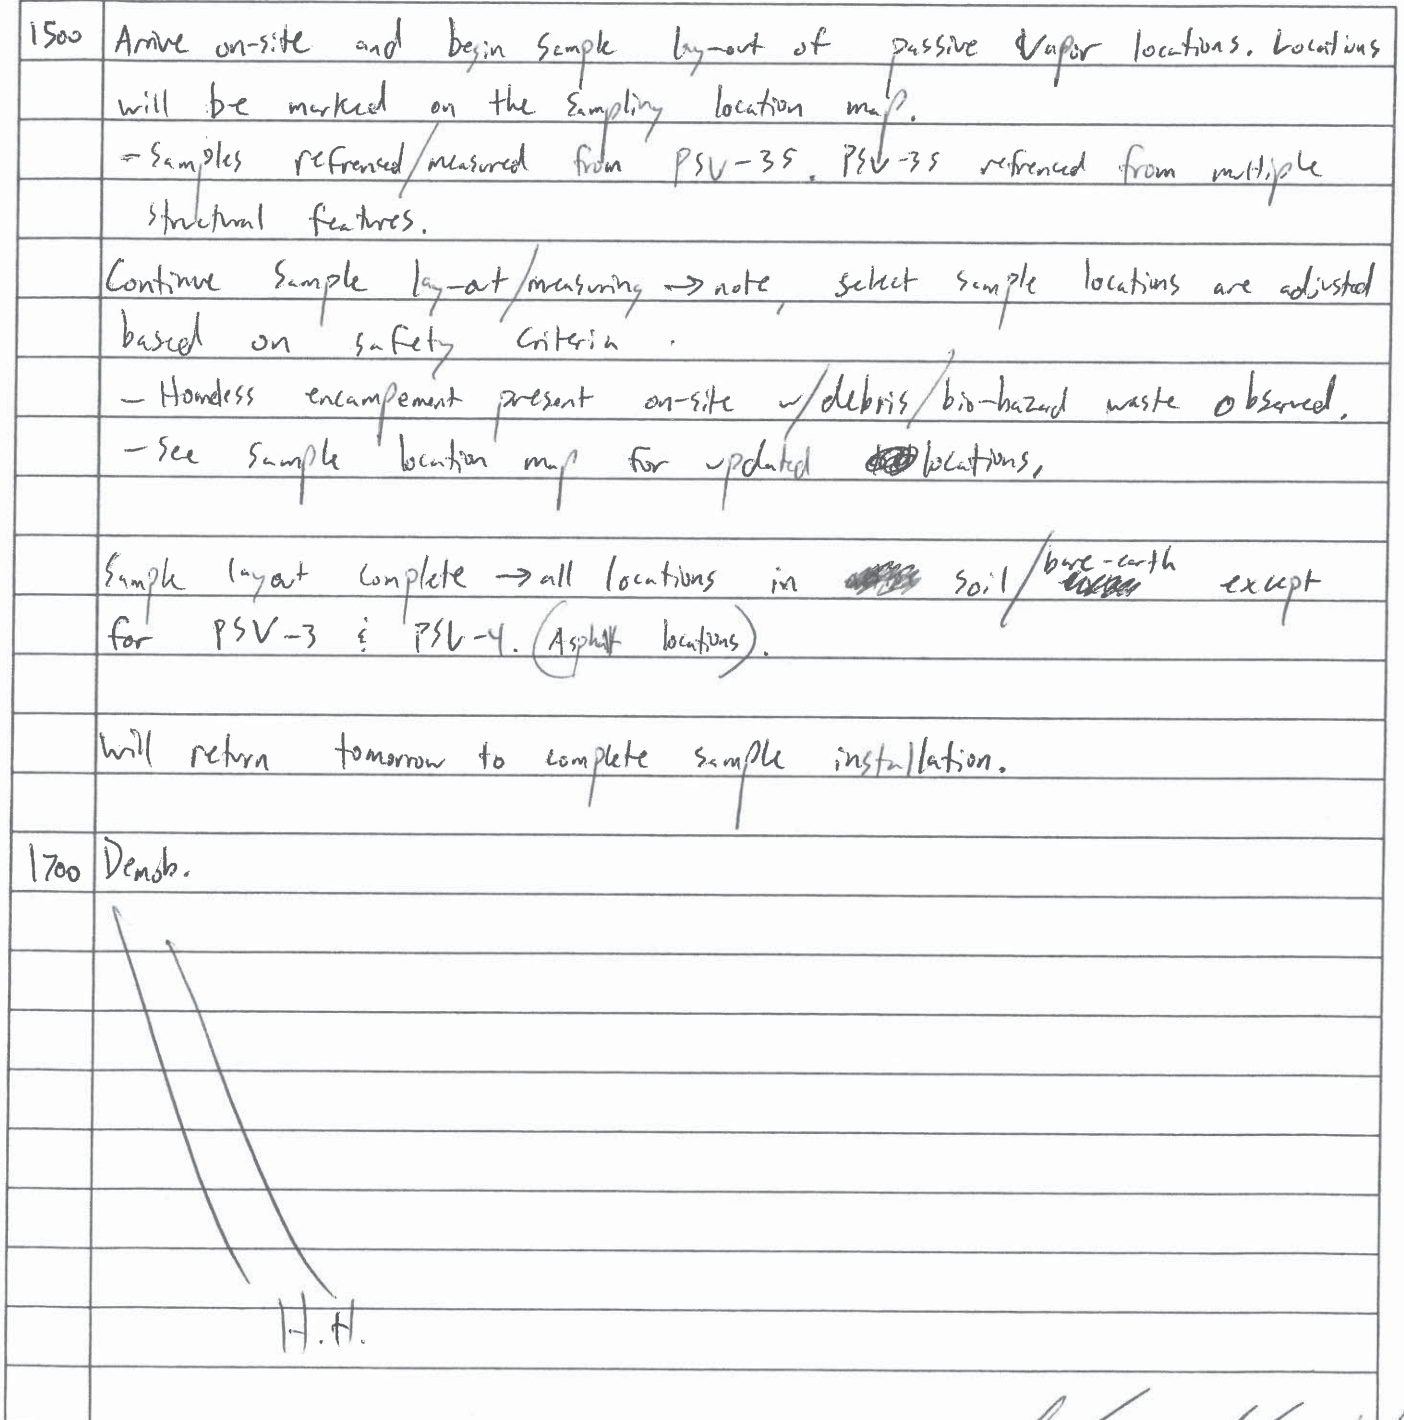 1500 Arrive on-site and begin sample lay-out of passive vapor locations. Locations
will be marked on the sampling location map.
- Samples refrenced/measured from PSV-35. PSV-35 refrenced from multiple
structural features.
Continue sample lay-out/measuring → note, select sample locations are adjusted
based on safety criteria.
- Homeless encampement present on-site w/debris/bio-hazard waste observed.
- See sample location map for updated locations.
Sample layout complete → all locations in soil/bare-earth except
for PSV-3 & PSV-4. (Asphalt locations).
Will return tomorrow to complete sample installation.
1700 Demob.
H.H.